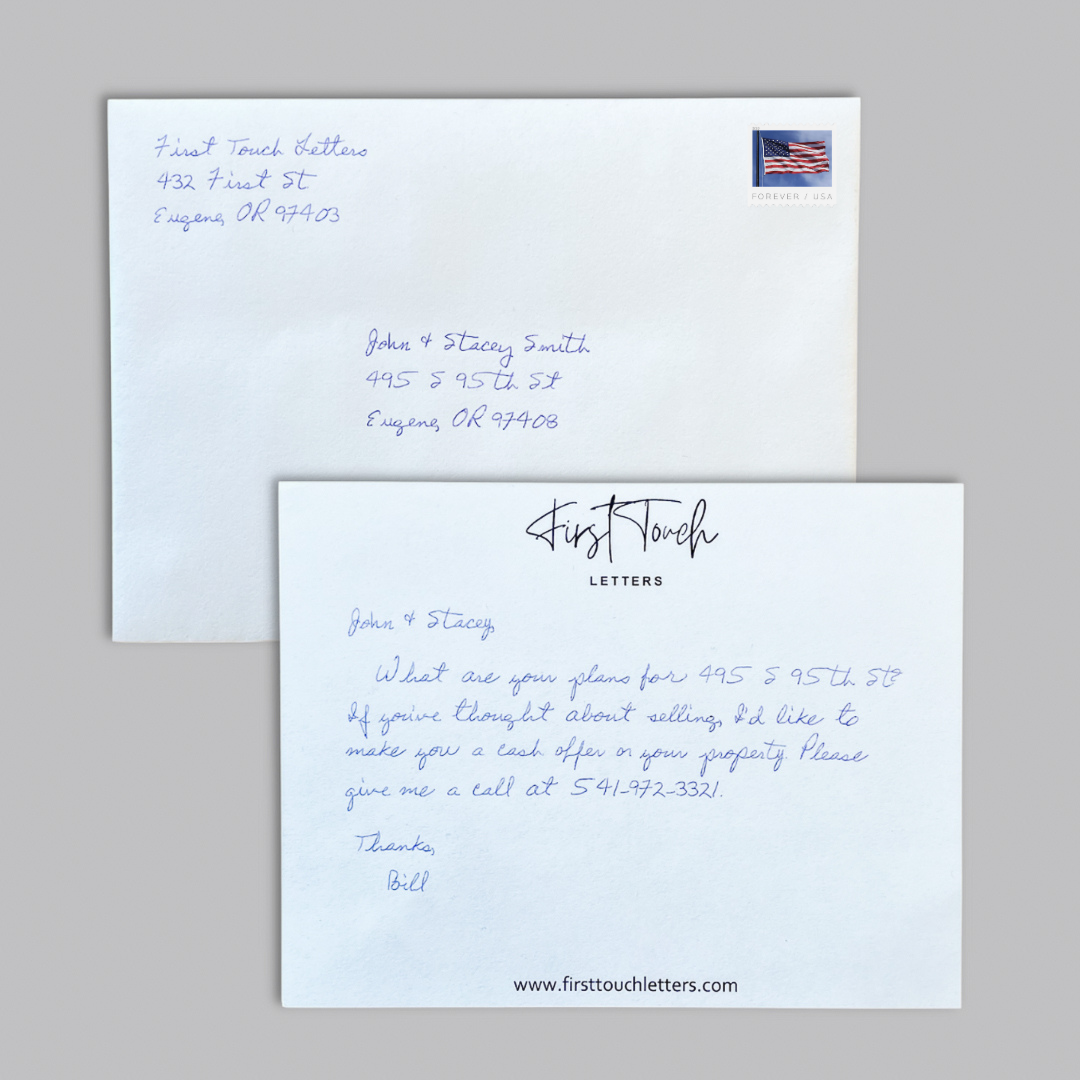 First Touch Letters
432 First St
Eugene, OR 97403
FOREVER / USA
John & Stacey Smith
495 S 95th St
Eugene, OR 97408
First Touch
LETTERS
John & Stacey,
What are your plans for 495 S 95th St?
If you've thought about selling, I'd like to
make you a cash offer on your property. Please
give me a call at 541-972-3321.
Thanks,
Bill
www.firsttouchletters.com